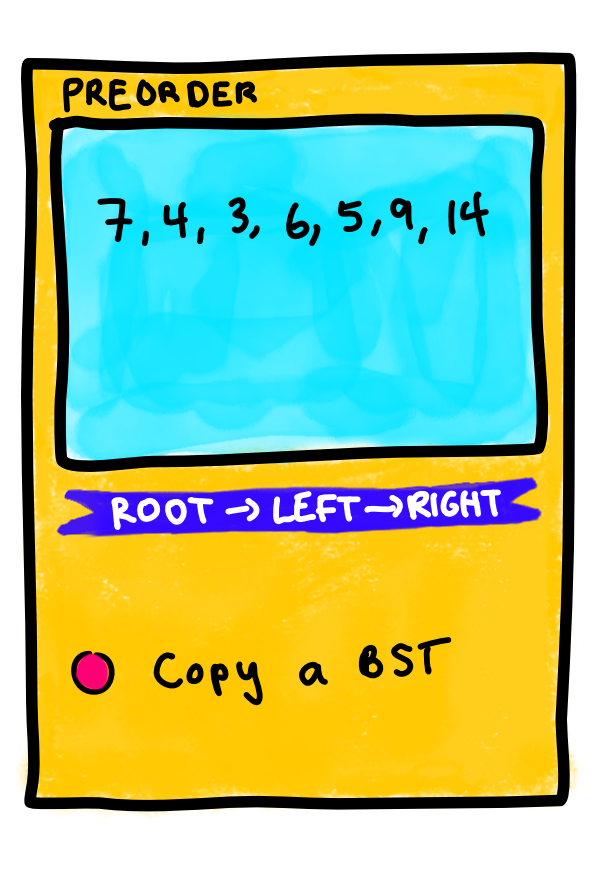 PREORDER
7, 4, 3, 6, 5, 9, 14
ROOT → LEFT → RIGHT
Copy a BST